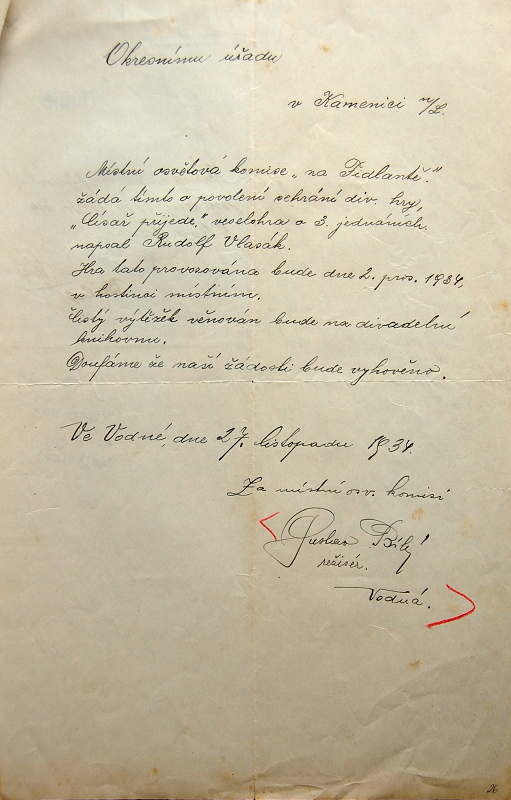 Okresnímu úřadu
v Kamenici n/L.
Místní osvětová komise „na Fidlantě."
žádá tímto o povolení sehrání div. hry,
„Císař přijede," veselohra o 3. jednáních.
napsal Rudolf Vlasák.
Hra tato provozována bude dne 2. pros. 1934,
v hostinci místním.
Čistý výtěžek věnován bude na divadelní
knihovnu.
Doufáme že naší žádosti bude vyhověno.
Ve Vodné, dne 27. listopadu 1934.
Za místní osv. komisi
Gustav Bílý
režisér.
Vodná.
26